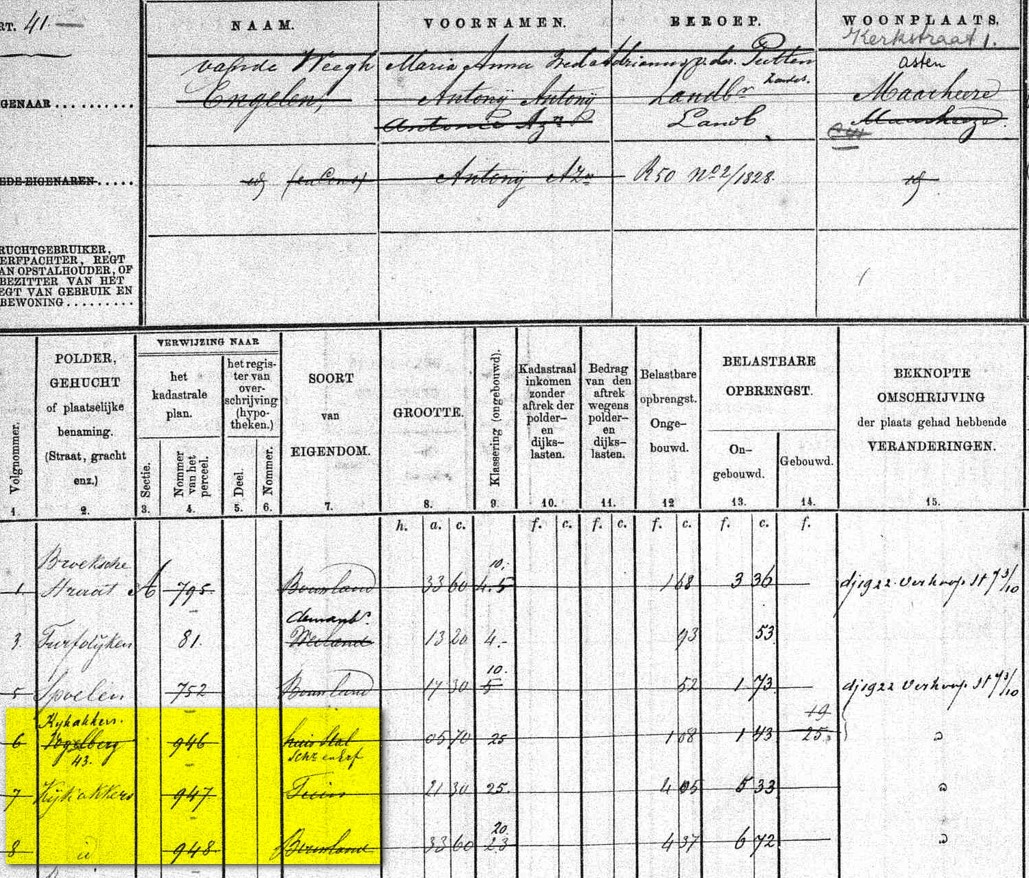 RT. 41
NAAM. VOORNAMEN. BEROEP. WOONPLAATS.
Kerkstraat 1.
van de Weegh Maria Anna Putten asten
GENAAR.......... Engelen, Antonij Antonij Landbr Maarheeze
Antonie Azn Landb Maarheeze
EDE-EIGENAREN..... id Antonij Azn R50 No 2/1828. id
RUCHTGEBRUIKER,
ERFPACHTER, REGT
AN OPSTALHOUDER, OF
BEZITTER VAN HET
EGT VAN GEBRUIK EN
BEWONING.........
Volgnommer.
POLDER,
GEHUCHT
of plaatselijke
benaming.
(Straat, gracht
enz.)
VERWIJZING NAAR
het
kadastrale
plan.
het regis-
ter van
over-
schrijving
(hypo-
theken.)
Sectie.
Nommer
van het
perceel.
Deel.
Nommer.
SOORT
van
EIGENDOM.
GROOTTE.
Klassering (ongebouwd).
Kadastraal
inkomen
zonder
aftrek der
polder-
en
dijks-
lasten.
Bedrag
van den
aftrek
wegens
polder-
en
dijks-
lasten.
Belastbare
opbrengst.
Onge-
bouwd.
BELASTBARE
OPBRENGST.
On-
gebouwd.
Gebouwd.
BEKNOPTE
OMSCHRIJVING
der plaats gehad hebbende
VERANDERINGEN.
1. 2. 3. 4. 5. 6. 7. 8. 9. 10. 11. 12 13. 14. 15.
h. a. c. f. c. f. c. f. c. f. c. f.
Broeksche 10.
1. Straat A 795 Bouwland 33 60 4. 5 1 68 3 36 dj1922 Verkoop St 73/10
3. Turfdijken 81. Weiland 13 20 4.- 93 53
10.
5 Spoelen 752 Bouwland 17 30 5 52 1 73 dj1922 Verkoop St 73/10
Kijkakkers. 19
6 Vogelberg 946 huis stal 05 70 25 1 08 1 43 25.
43. schr en erf
7 Kijkakkers 947 Tuin 21 30 25. 4 05 5 33
20
8 id 948 Bouwland 33 60 23 4 37 6 72